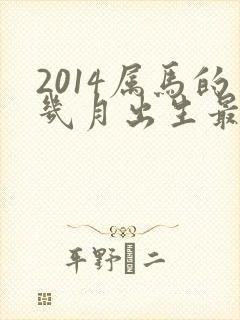 2014属馬的
幾月出生最
平野 二